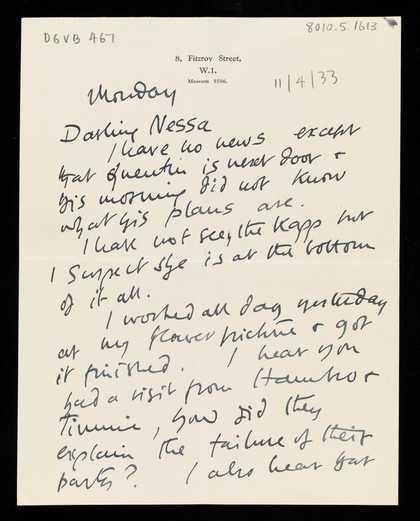 DGVB 467
8010.5.1613
8, Fitzroy Street,
W.1.
Museum 9196.
11/4/33
Monday
Darling Nessa
I have no news except
that Quentin is next door &
this morning did not know
what his plans are.
I have not seen the Kapp but
I suspect she is at the bottom
of it all.
I worked all day yesterday
at my flower picture & got
it finished. I hear you
had a visit from Hambro &
Timmie, how did they
explain the failure of their
party? I also hear that